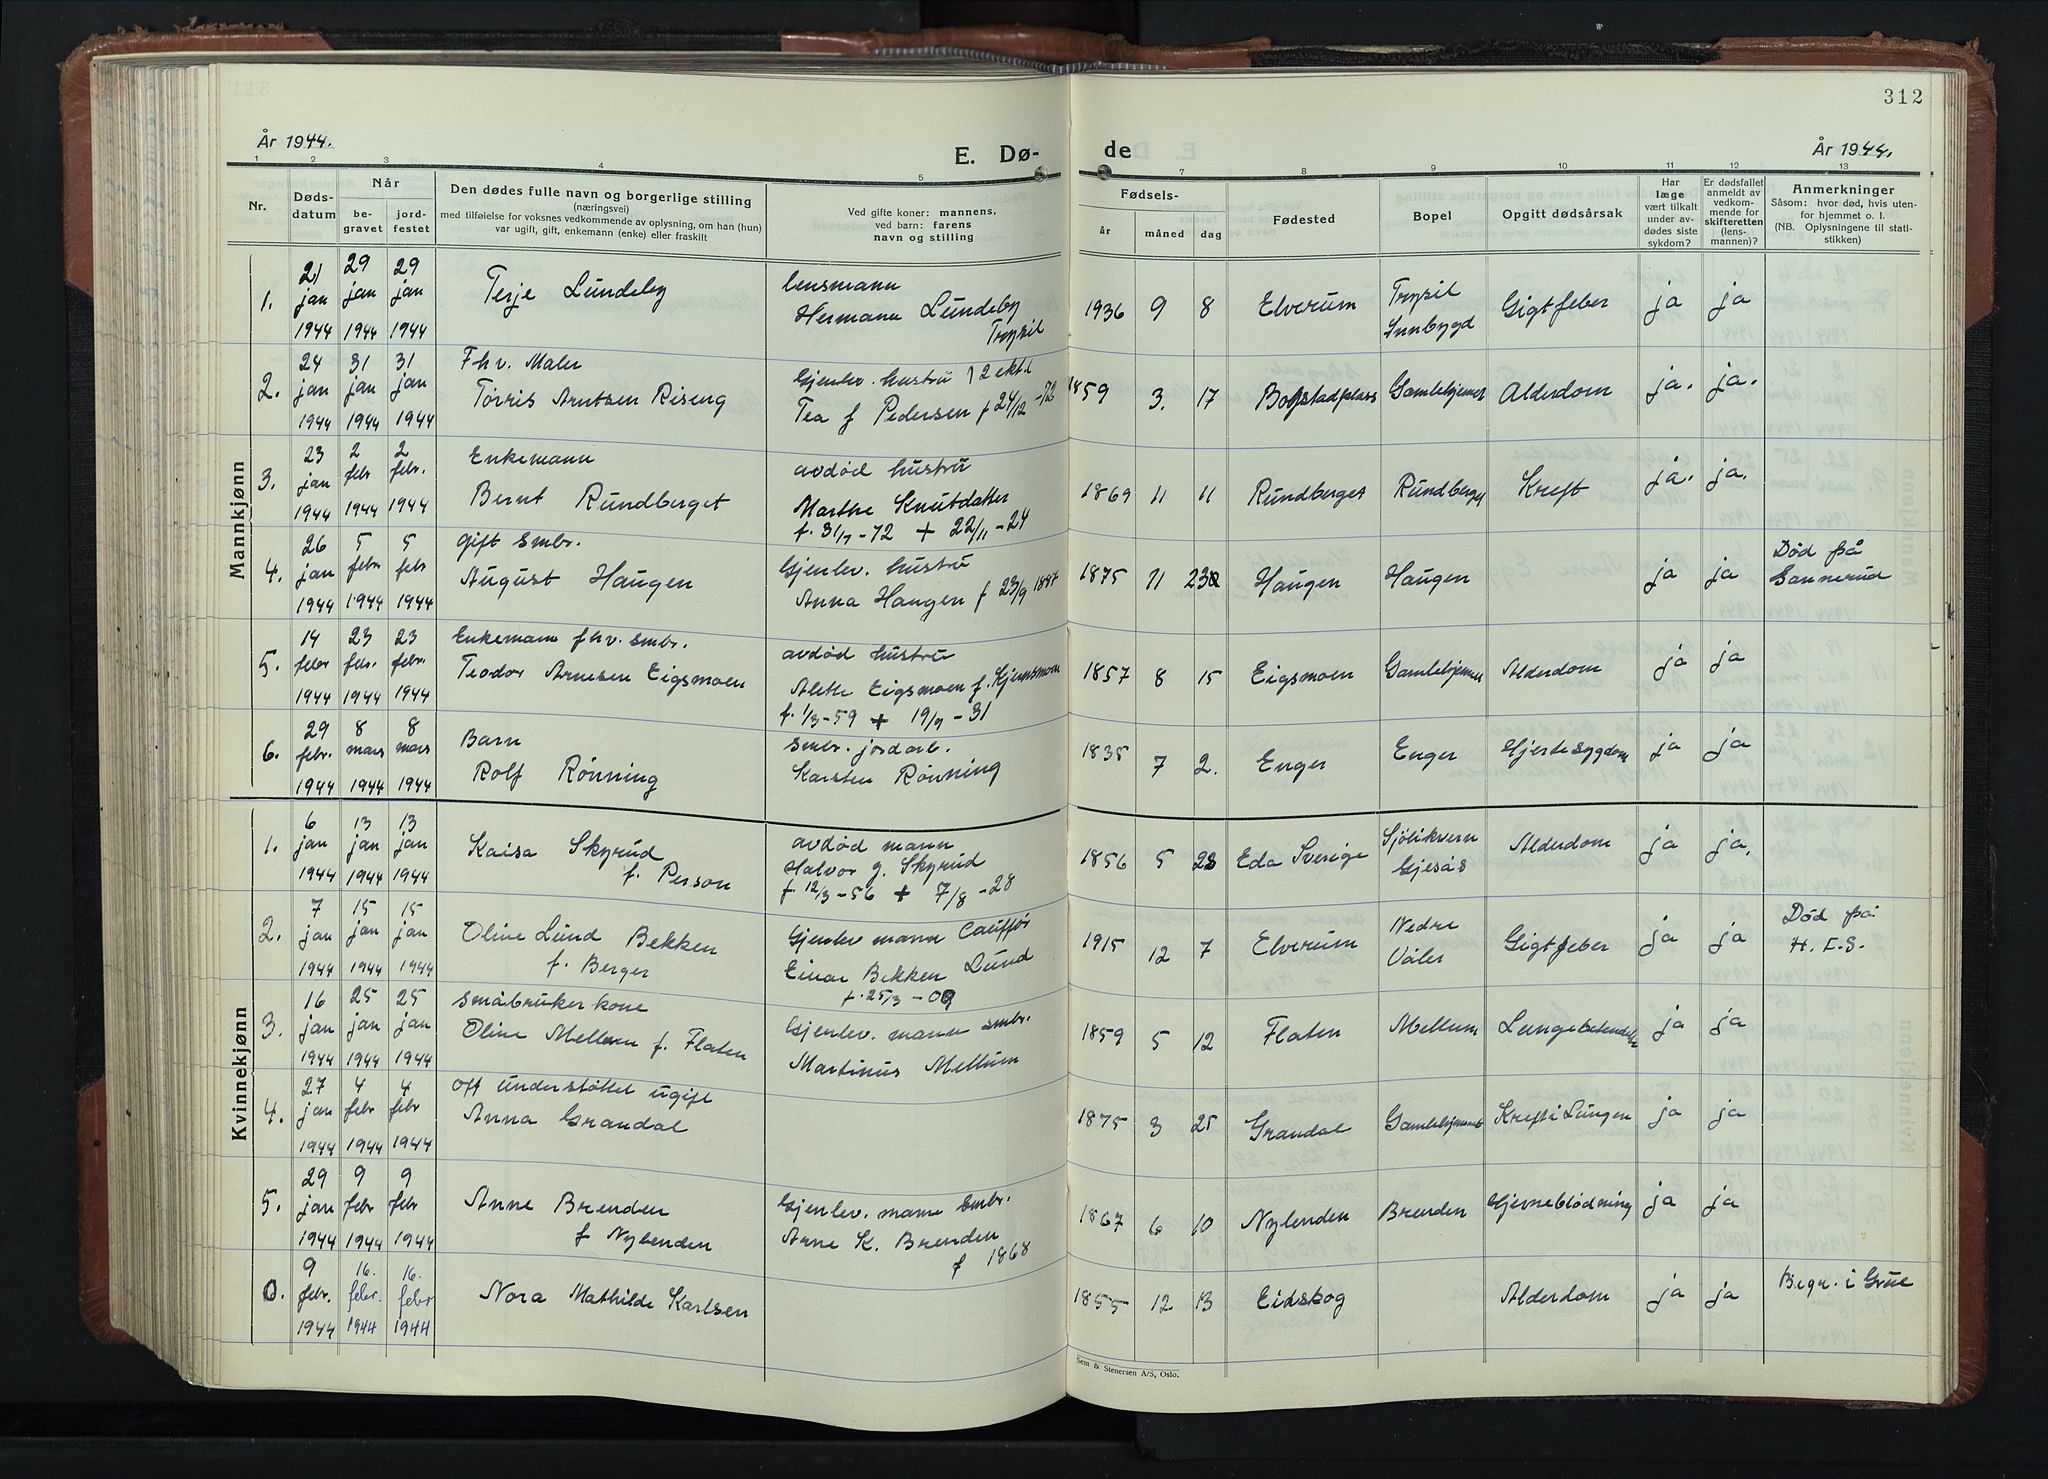 312
År 1944.
E. Dø- de
År 1944.
1 2 3 4 5 7 8 9 10 11 12 13
Nr.
Døds-
datum
Når
be-
gravet
jord-
festet
Den dødes fulle navn og borgerlige stilling
(næringsvei)
med tilføielse for voksnes vedkommende av oplysning, om han (hun)
var ugift, gift, enkemann (enke) eller fraskilt
Ved gifte koner: mannens,
ved barn: farens
navn og stilling
Fødsels-
år måned dag
Fødested
Bopel
Opgitt dødsårsak
Har
læge
vært tilkalt
under av-
dødes siste
sykdom?
Er dødsfallet
anmeldt av
vedkom-
mende for
skifteretten
(lens-
mannen)?
Anmerkninger
Såsom: hvor død, hvis uten-
for hjemmet o. l.
(NB. Oplysningene til stati-
stikken)
Mannkjønn
1. 21 jan 1944 29 jan 1944 29 jan 1944
Terje Lundeby
lensmann
Hermann Lundeby
Trysil
1936 9 8 Elverum
Trysil
Innbygd
Gigtfeber ja ja
2. 24 jan 1944 31 jan 1944 31 jan 1944
Fhv. Maler
Torris Arntsen Riseng
Gjenlev. hustru
Tea f Pedersen f 24/12 -72
1859 3. 17 Gamlehjemet Alderdom ja. ja.
3. 23 jan 1944 2 febr 1944 2 febr. 1944
Enkemann
Bernt Rundberget
avdød hustru
Marthe Knutdatter
f. 31/7-72 + 22/11-24
1869 11 11 Rundberget Rundberget Kreft ja. ja.
4. 26 jan 1944 5 febr 1944 5 febr 1944
gift smbr.
August Haugen
Gjenlev. hustru
Anna Haugen f 23/9 1887
1875 11 Haugen Haugen ja ja
Død på
Sannerud
5. 14 febr 1944 23 febr. 1944 23 febr. 1944
Enkemann fhv. smbr.
Teodor Arnesen Eigsmoen
avdød hustru
Alette Eigsmoen f. Kjernsmoen
f. 1/3-59 + 19/7-31
1857 8 15 Eigsmoen Gamlehjemet Alderdom ja ja
6. 29 febr. 1944 8 mars 1944 8 mars 1944
Barn
Rolf Rønning
smbr. jordarb.
Karsten Rønning
1835 7 2. Enger Enger Hjertesygdom ja ja
Kvinnekjønn
1. 6 jan 1944 13 jan 1944 13 jan 1944
Kaisa Skyrud
f. Person
avdød mann
Halvor g. Skyrud
f. 12/3-56 + 7/8-28
1856 5 28 Eda Sverige
Sjölikvern
Gjesås
Alderdom ja ja,
2. 7 jan 1944 15 jan 1944 15 jan 1944
Oline Lund Bekken
f. Berger
Gjenlev mann Cauffør
Einar Bekken Lund
f. 25/3-09
1915 12 7 Elverum
Nedre
Våler
Gigtfeber ja ja
Død på
H. E. S.
3. 16 jan 1944 25 jan 1944 25 jan 1944
småbruker kone
Oline Mellem f. Flaten
Gjenlev. mann smbr.
Martinus Mellum
1859 5 12 Flaten Mellum Lungebetendelse ja ja
4. 27 jan 1944 4 febr 1944 4 febr 1944
off understøttet ugift
Anna Grandal
1875 3 25 Grandal Gamlehjemmet Kreft i Lungen ja ja
5. 29 jan 1944 9 febr 1944 9 febr 1944
Anne Brenden
f Nylenden
Gjenlev. mann Smbr.
Arne K. Brenden
f 1868
1867 6 10 Nylenden Brenden Hjerneblødning ja ja
0. 9 febr. 1944 16. febr. 1944 16. febr 1944
Nora Mathilde Karlsen
1855 12 13 Eidskog Alderdom ja ja
Begr. i Grue
Sem & Stenersen A/S, Oslo.